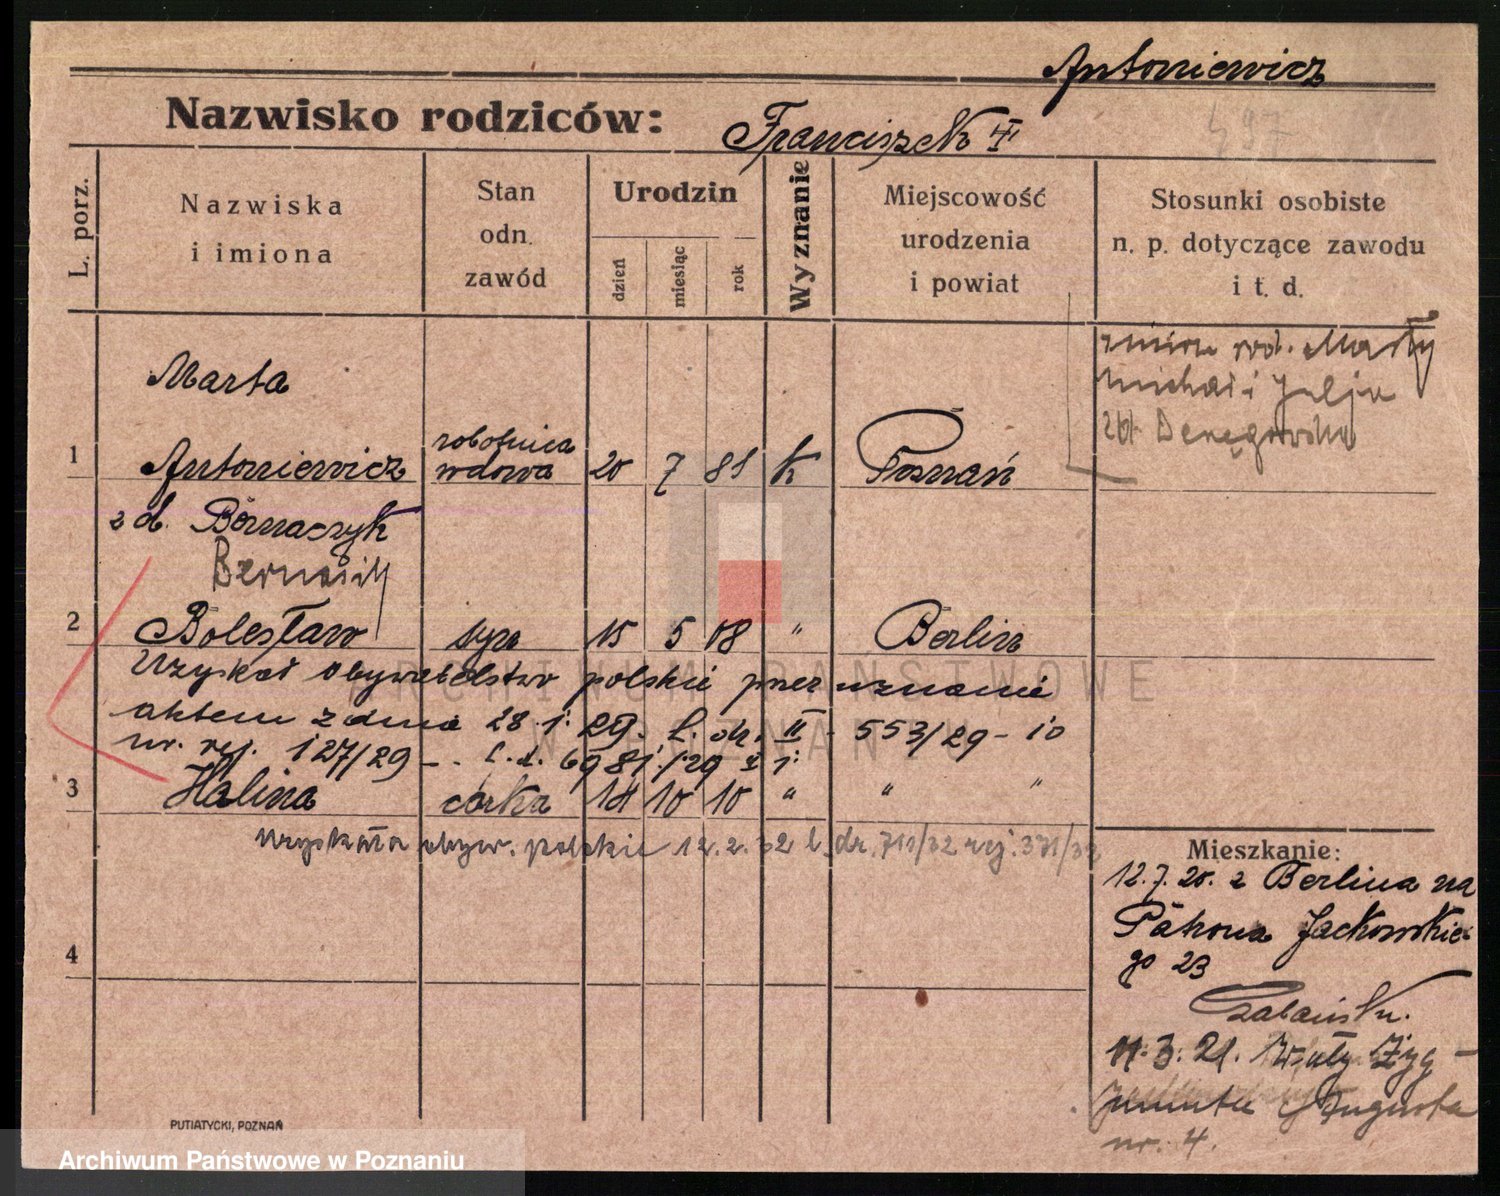 Antoniewicz
Nazwisko rodziców:
Franciszek †
497
L. porz.
Nazwiska
i imiona
Stan
odn.
zawód
Urodzin
dzień
miesiąc
rok
Wyznanie
Miejscowość
urodzenia
i powiat
Stosunki osobiste
n. p. dotyczące zawodu
i t. d.
rod. Marty
Michał i Julja
Marta
1 Antoniewicz robotnica wdowa 20 7 81 K Poznań
z d. Bernaczyk
2 Bolesław syn 15 5 08 " Berlin
Uzyskał obywatelstwo polskie przez uznanie
aktem z dnia 28.1.29. L. dz. II 553/29 - 10
nr. rej. 127/29
3 Halina córka 14 10 10 " " "
uzyskała obyw. polskie 12.2.32 l. dz. 710/32 rej. 371/32
4
Mieszkanie:
12.7.20. z Berlina na
Patrona Jackowskie-
go 23
11.3.21. Wały Zyg-
munta Augusta
nr. 4.
PUTIATYCKI, POZNAŃ
ARCHIWUM PAŃSTWOWE
W POZNANIU
Archiwum Państwowe w Poznaniu